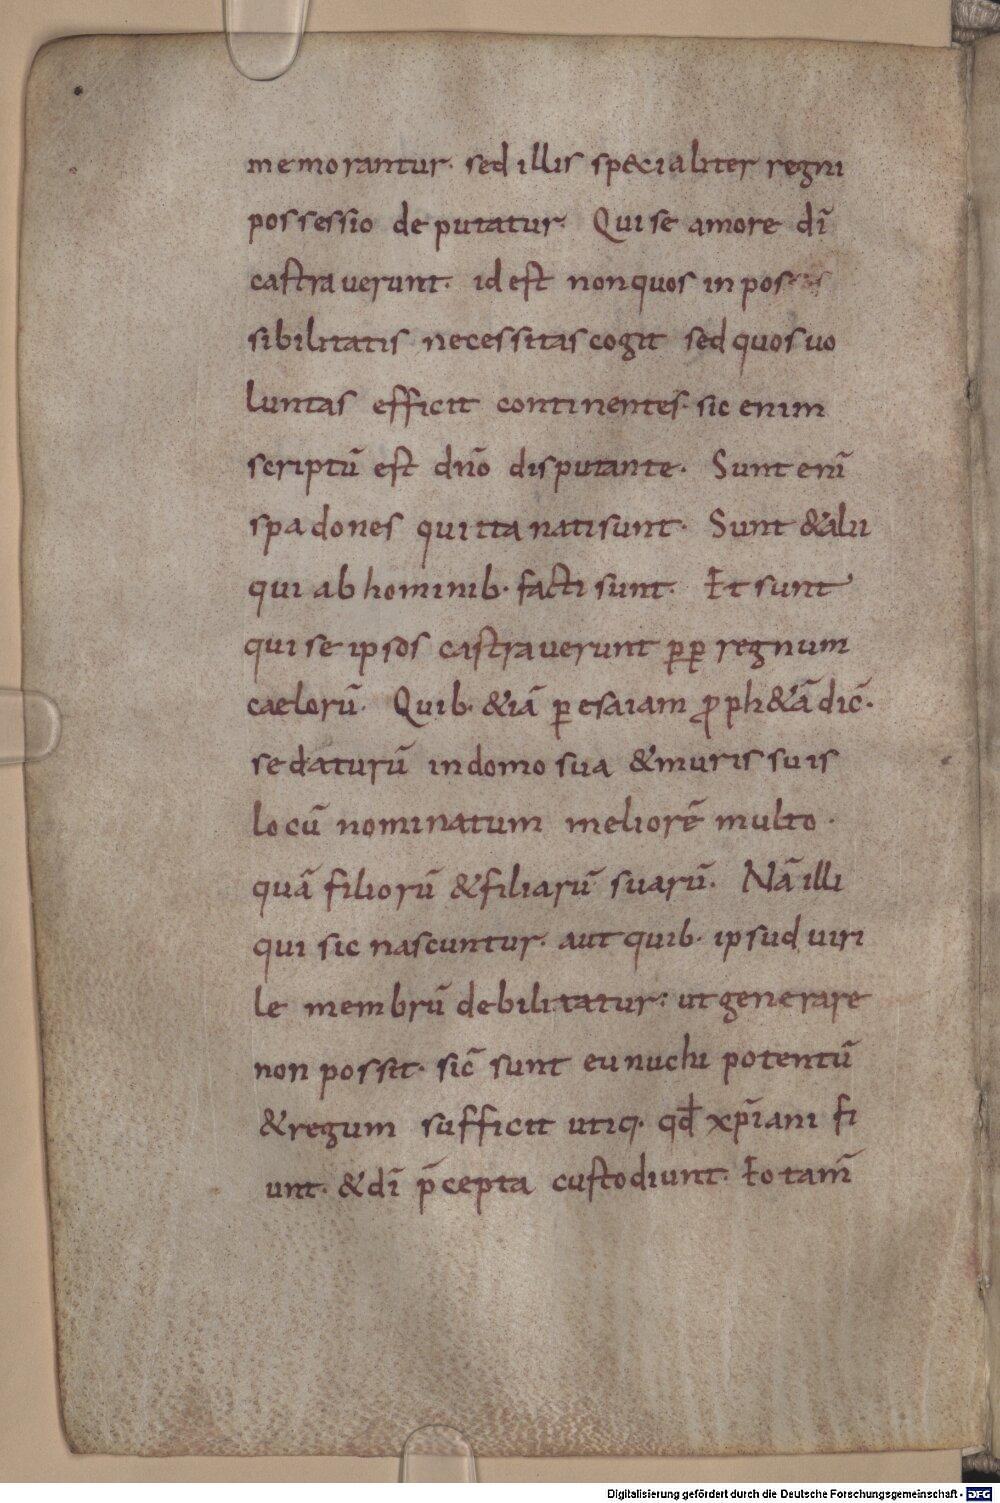 memorantur. sed illis specialiter regni
possessio deputatur. Qui se amore dī
castraverunt. id est non quos inpos
sibilitatis necessitas cogit sed quos uo
luntas efficit continentes. sic enim
scriptū est dn̄o disputante. Sunt enī
spadones qui ita nati sunt. Sunt & alii
qui ab hominib. facti sunt. Et sunt
qui se ipsos castraverunt ꝑꝑ regnum
caelorū. Quib. & iā ꝑ esaiam ꝓph&ā dic̄.
se daturū in domo sua & muris suis
locū nominatum meliorē multo.
quā filiorū & filiarū suarū. Nā illi
qui sic nascuntur. aut quib. ipsud uiri
le membrū debilitatur: ut generare
non possit. sic̄ sunt eunuchi potentū
& regum sufficit utiq. qđ xp̄iani fi
unt. & dī p̄cepta custodiunt. Eo tam̄
Digitalisierung gefördert durch die Deutsche Forschungsgemeinschaft - DFG